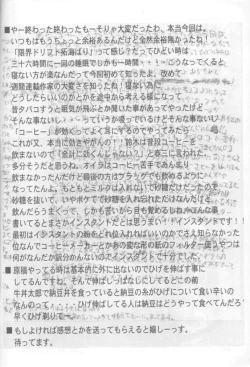 ■やー終わった終わったもーそりゃ大変だったか、本当今回は。
いつもはもうちょっと余裕あるんだけど全然余裕無かったな!
「限界ドリフト拓海ばり」って感じ?だってひどい時は
三十六時間に一回の睡眠でしかも一時間・・・こうなってくると、
寝ない方が楽なんだって今回初めて知ったよ。改めて
週間連載作家の大変さを知ったわ!寝ない為に
どうしたらいいのかとか途中から考えてみたりして。
昔タバコすうと眠気が飛ぶとか聞いた事があってやったけど
そんな事ないし・・・っていうか吸っているけどそんな事ないし
「コーヒー」が効くってよく耳にするのでやってみたさ・・・。
これが又、本当に効きやがんの!!鈴木は普段コーヒーを
飲まないので「余計に効くんじゃない?」と赤三に言われた
多分そうだと思うね。オイラはコーヒー苦手であんまし
飲まなかったんだけど最後の方はブラックでも飲めるように
なってたんよ。もともとミルクは入れないで砂糖だけだったので
砂糖を抜いて、いやボケてて砂糖を入れ忘れただけなんだけど、
飲んだらうまくって、しかも苦いから目も覚めるしね。そんな事
書いてるとまさかインスタントだとは思うまい!!インスタントです!!
最初はインスタントの粉をどん位入れればいいのかでさえ知らなかった
位なんでコーヒーメーカーとかあの変な形の紙のフィルター使うやつは
何がなんだか訳分かんないのでインスタントで十分でした。
■原稿やってる時は基本的に外に出ないのでひげを伸ばす事に
してるんですね。そんで伸ばしっぱなしにしてるとこの前
牛丼太郎で納豆丼を食っていると納豆の糸がひげについて食い辛いの
なんのって・・・。ひげ伸ばしてる人は納豆はどうやって食べてんだろう
早くひげ剃りて〜。
■もしよければ感想とかを送ってもらえると嬉しーっす。
待ってます。